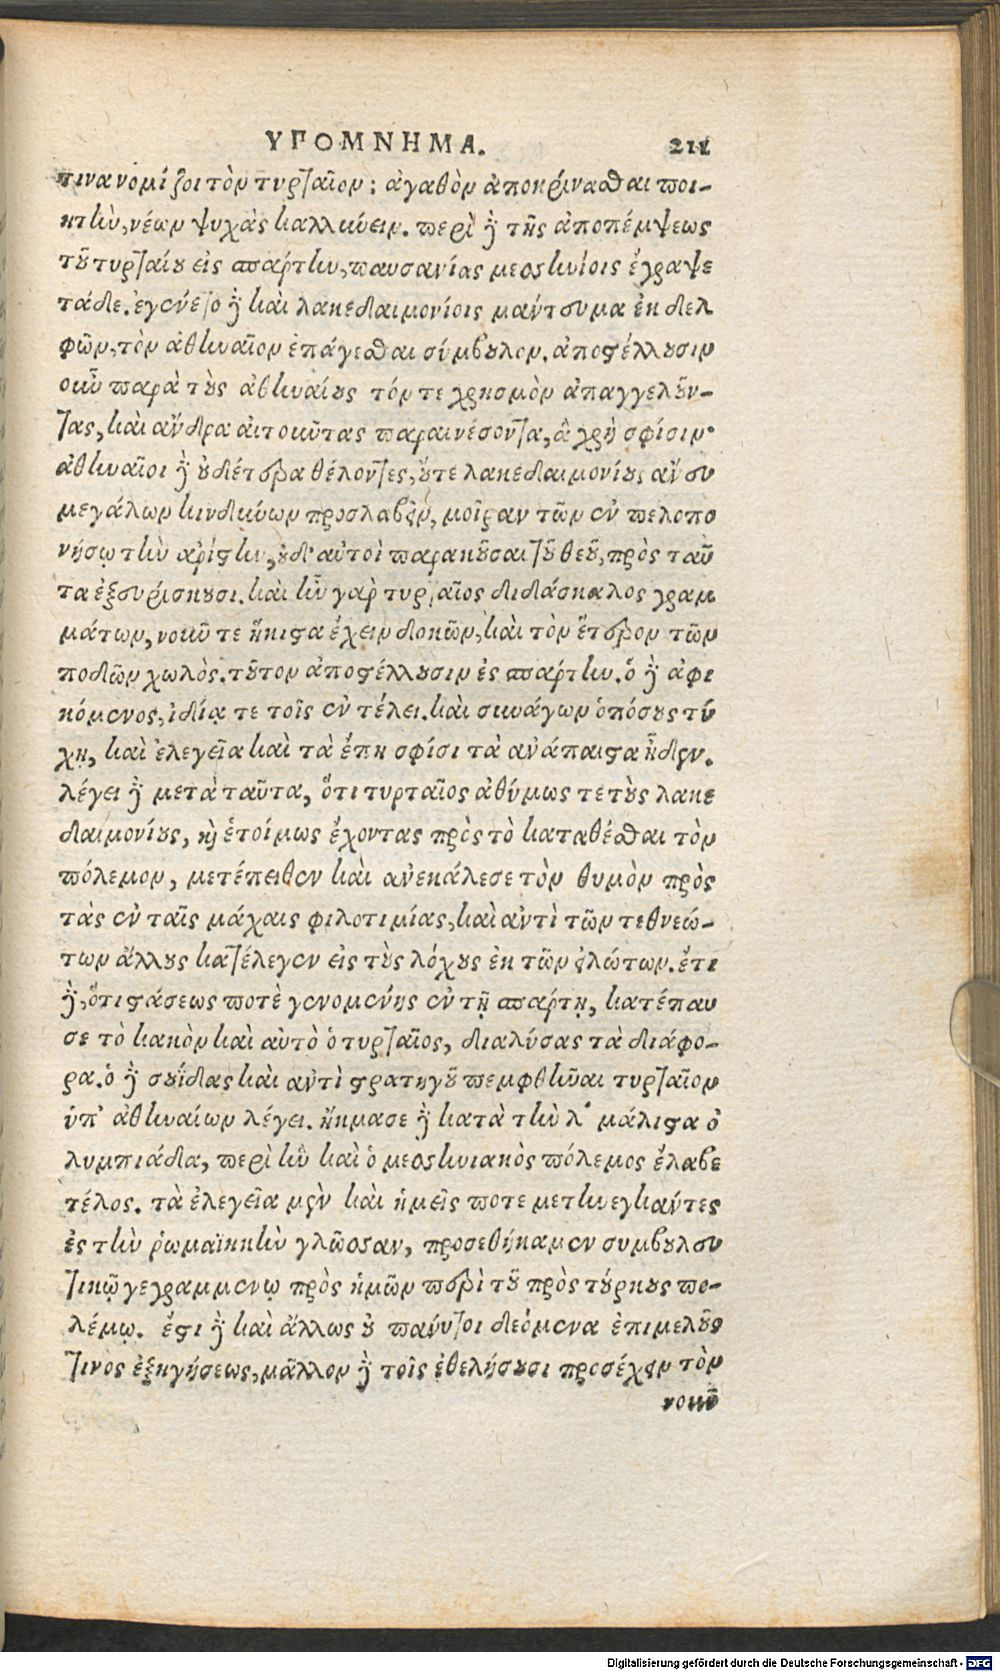 ΥΠΟΜΝΗΜΑ. 211
τινα νομίζοι τὸν τυρταῖον; ἀγαθὸν ἀποκρίνασθαι ποι-
ητὴν, νέων ψυχὰς καλλκύειν. περὶ δὲ τῆς ἀποπέμψεως
τοῦ τυρταίου εἰς σπάρτην, παυσανίας μεσσηνίοις ἔγραψε
τάδε. ἐγένετο δὲ καὶ λακεδαιμονίοις μάντευμα ἐκ δελ
φῶν, τὸν ἀθηναῖον ἐπάγεσθαι σύμβουλον. ἀποστέλλουσιν
οὖν παρὰ τοὺς ἀθηναίους τόν τε χρησμὸν ἀπαγγελοῦν-
τας, καὶ ἄνδρα αἰτοῦντας παραινέσοντα, ἃ χρή σφίσιν·
ἀθηναῖοι δὲ οὐδέτερα θέλοντες, οὔτε λακεδαιμονίους ἄνευ
μεγάλων κινδύνων προσλαβεῖν, μοῖραν τῶν ἐν πελοπο
νήσῳ τὴν ἀρίστην, οὐδ' αὐτοὶ παρακοῦσαι τοῦ θεοῦ, πρὸς ταῦ
τα ἐξευρίσκουσι. καὶ ἦν γὰρ τυρταῖος διδάσκαλος γραμ
μάτων, νοῦν τε ἥκιστα ἔχειν δοκῶν, καὶ τὸν ἕτερον τῶν
ποδῶν χωλὸς. τοῦτον ἀποστέλλουσιν ἐς σπάρτην. ὁ δὲ ἀφι
κόμενος, ἰδίᾳ τε τοῖς ἐν τέλει. καὶ συνάγων ὁπόσους τύ
χῃ, καὶ ἐλεγεῖα καὶ τὰ ἔπη σφίσι τὰ ἀνάπαιστα ᾖδεν.
λέγει δὲ μετὰ ταῦτα, ὅτι τυρταῖος ἀθύμως τε τοὺς λακε
δαιμονίους, καὶ ἑτοίμως ἔχοντας πρὸς τὸ καταθέσθαι τὸν
πόλεμον, μετέπειθεν καὶ ἀνεκάλεσε τὸν θυμὸν πρὸς
τὰς ἐν ταῖς μάχαις φιλοτιμίας, καὶ ἀντὶ τῶν τεθνεώ-
των ἄλλους κατέλεγεν εἰς τοὺς λόχους ἐκ τῶν εἱλώτων. ἔτι
δὲ, ὅτι στάσεως ποτὲ γενομένης ἐν τῇ σπάρτῃ, κατέπαυ
σε τὸ κακὸν καὶ αὐτὸ ὁ τυρταῖος, διαλύσας τὰ διάφο-
ρα. ὁ δὲ σουΐδας καὶ ἀντὶ στρατηγοῦ πεμφθῆναι τυρταῖον
ὑπ' ἀθηναίων λέγει. ἤκμασε δὲ κατὰ τὴν λʹ μάλιστα ὀ
λυμπιάδα, περὶ ἣν καὶ ὁ μεσσηνιακὸς πόλεμος ἔλαβε
τέλος. τὰ ἐλεγεῖα μὲν καὶ ἡμεῖς ποτε μετηνεγκάντες
ἐς τὴν ῥωμαϊκὴν γλῶσσαν, προσεθήκαμεν συμβουλευ
τικῷ γεγραμμένῳ πρὸς ἡμῶν περὶ τοῦ πρὸς τούρκους πο-
λέμῳ. ἔστι δὲ καὶ ἄλλως οὐ πάνυ τοι δεόμενα ἐπιμελοῦς
τινος ἐξηγήσεως, μᾶλλον δὲ τοῖς ἐθελήσουσι προσέχειν τὸν
νοῦν
Digitalisierung gefördert durch die Deutsche Forschungsgemeinschaft - DFG